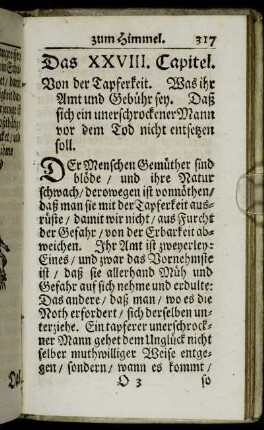 zum Himmel. 317
Das XXVIII. Capitel.
Von der Tapferkeit. Was ihr
Amt und Gebühr sey. Daß
sich ein unerschrockener Mann
vor dem Tod nicht entsetzen
soll.
DEr Menschen Gemüther sind
blöde / und ihre Natur
schwach / derowegen ist vonnöthen /
daß man sie mit der Tapferkeit aus-
rüste / damit wir nicht / aus Furcht
der Gefahr / von der Erbarkeit ab-
weichen. Ihr Amt ist zweyerley:
Eines / und zwar das Vornehmste
ist / daß sie allerhand Müh und
Gefahr auf sich nehme und erdulte:
Das andere / daß man / wo es die
Noth erfordert / sich derselben un-
terziehe. Ein tapferer unerschrock-
ner Mann gehet dem Unglück nicht
selber muthwilliger Weise entge-
gen / sondern / wann es kommt /
O 3 so